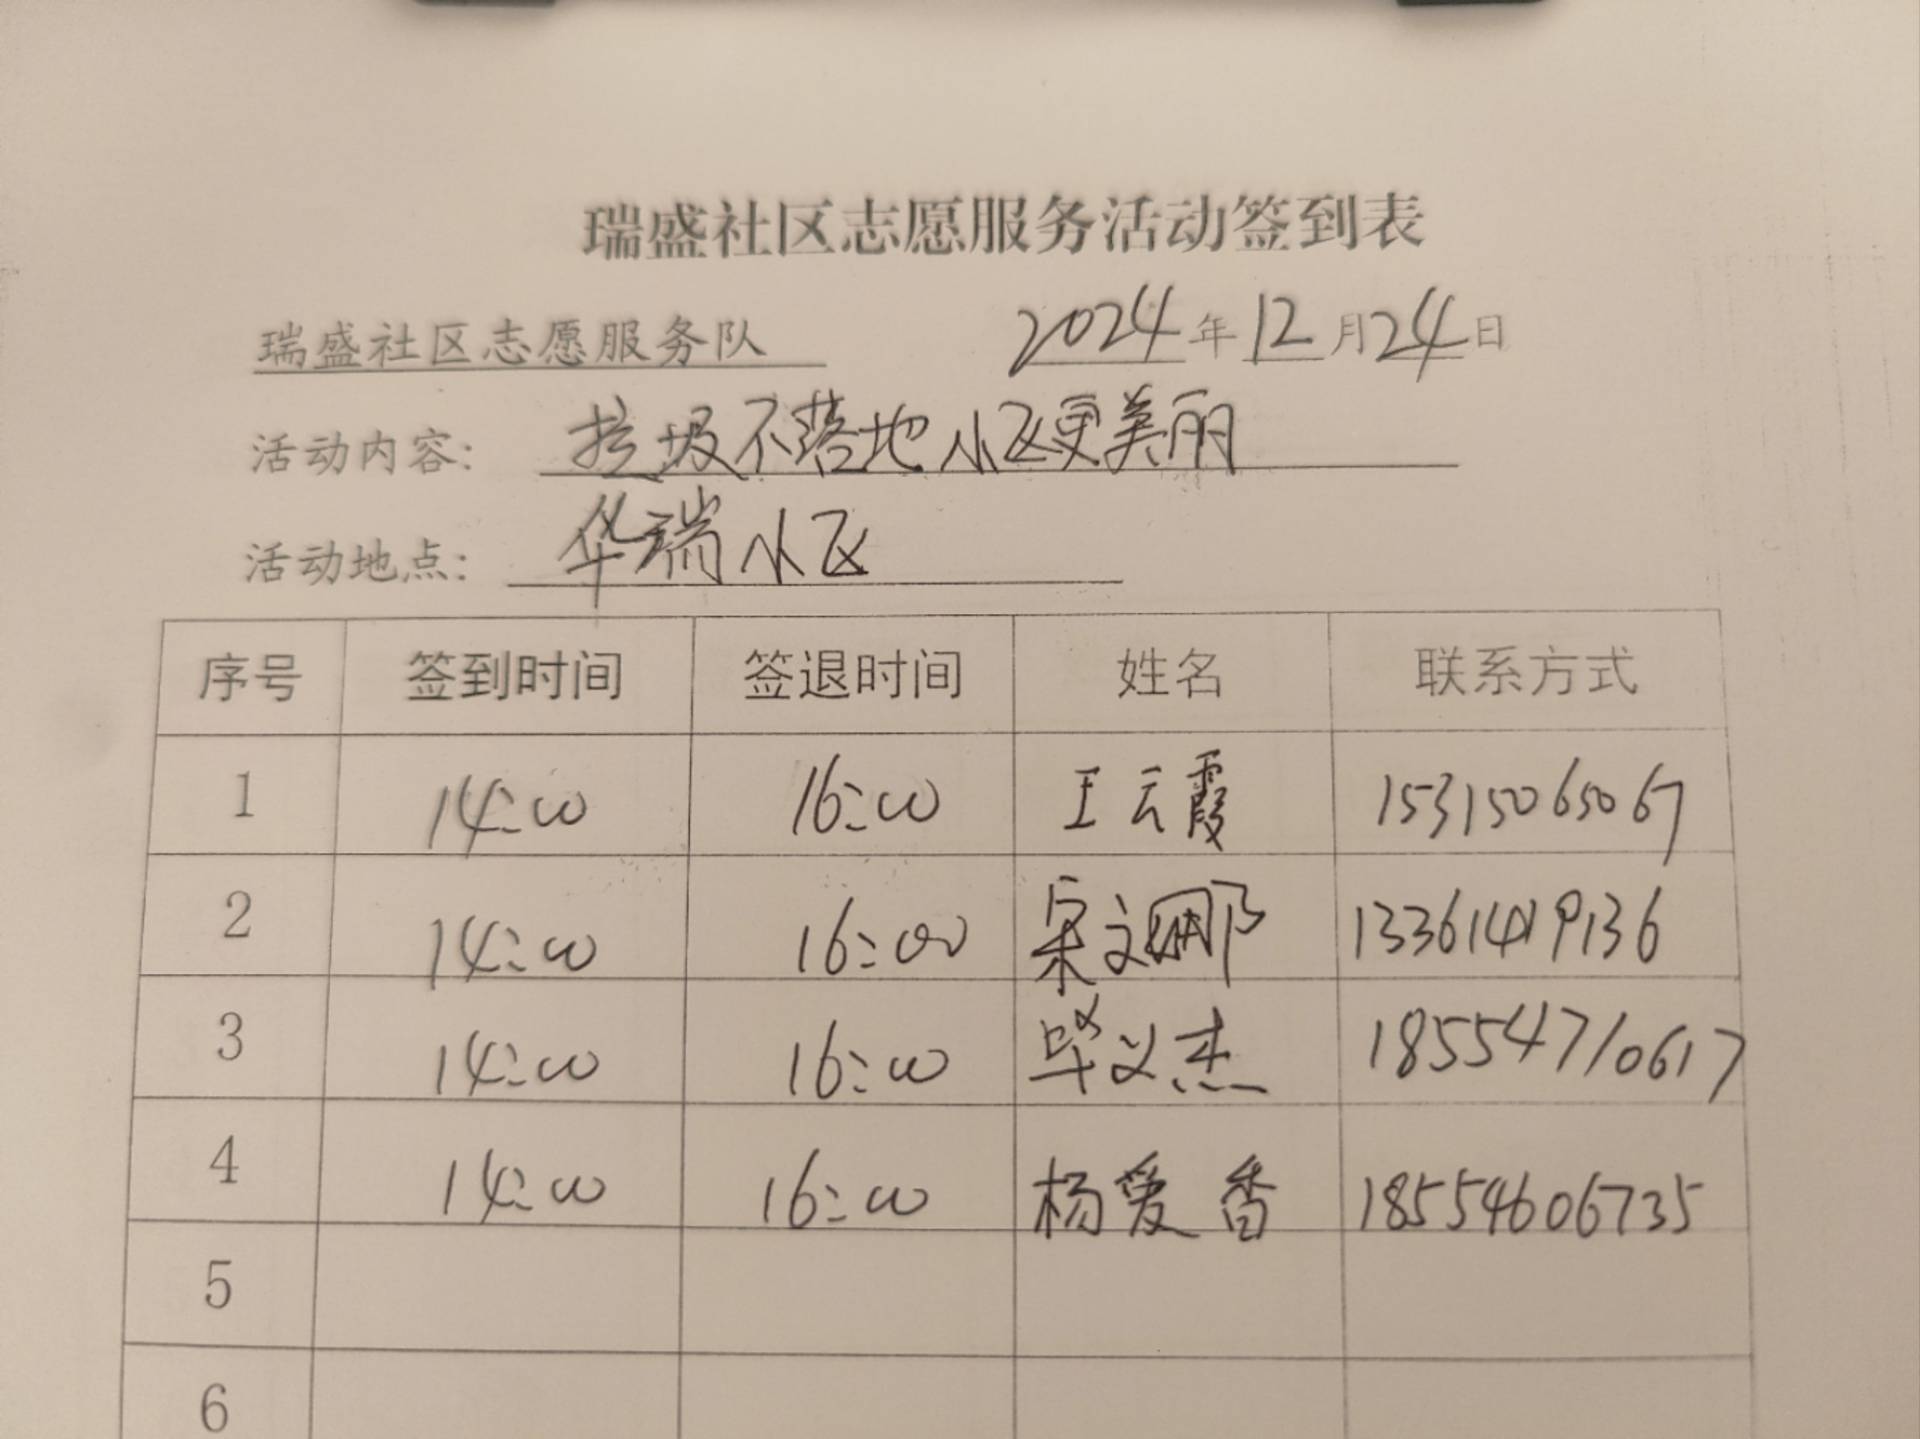 瑞盛社区志愿服务活动签到表
瑞盛社区志愿服务队 2024年12月24日
活动内容: 垃圾不落地小区更美丽
活动地点: 华瑞小区
序号 签到时间 签退时间 姓名 联系方式
1 14:00 16:00 王云霞 15315065067
2 14:00 16:00 宋文娜 13361419136
3 14:00 16:00 毕义杰 18554710617
4 14:00 16:00 杨爱香 18554606735
5
6